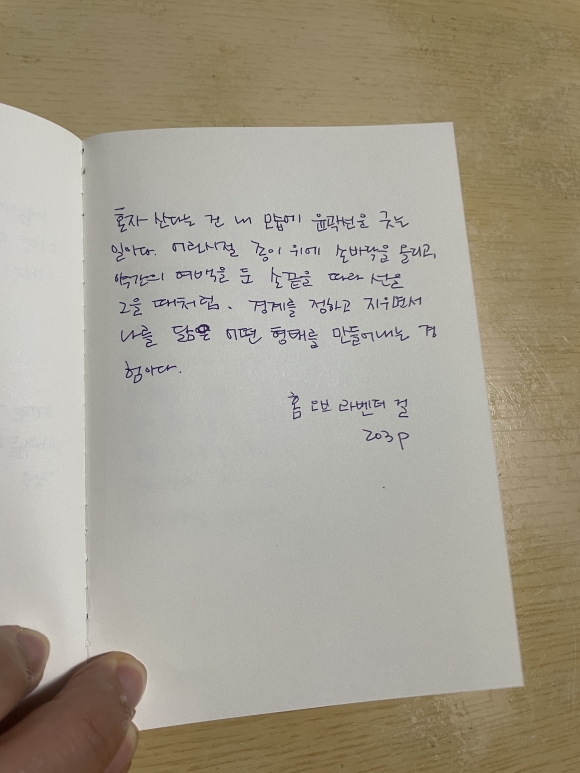 혼자 산다는 건 내 모습에 윤곽선을 긋는
일이다. 어린시절 종이 위에 손바닥을 올리고,
약간의 여백을 둔 손끝을 따라 선을
그을 때처럼. 경계를 정하고 지우면서
나를 닮은 어떤 형태를 만들어내는 경
험이다.
홈 라벤더 걸
203p